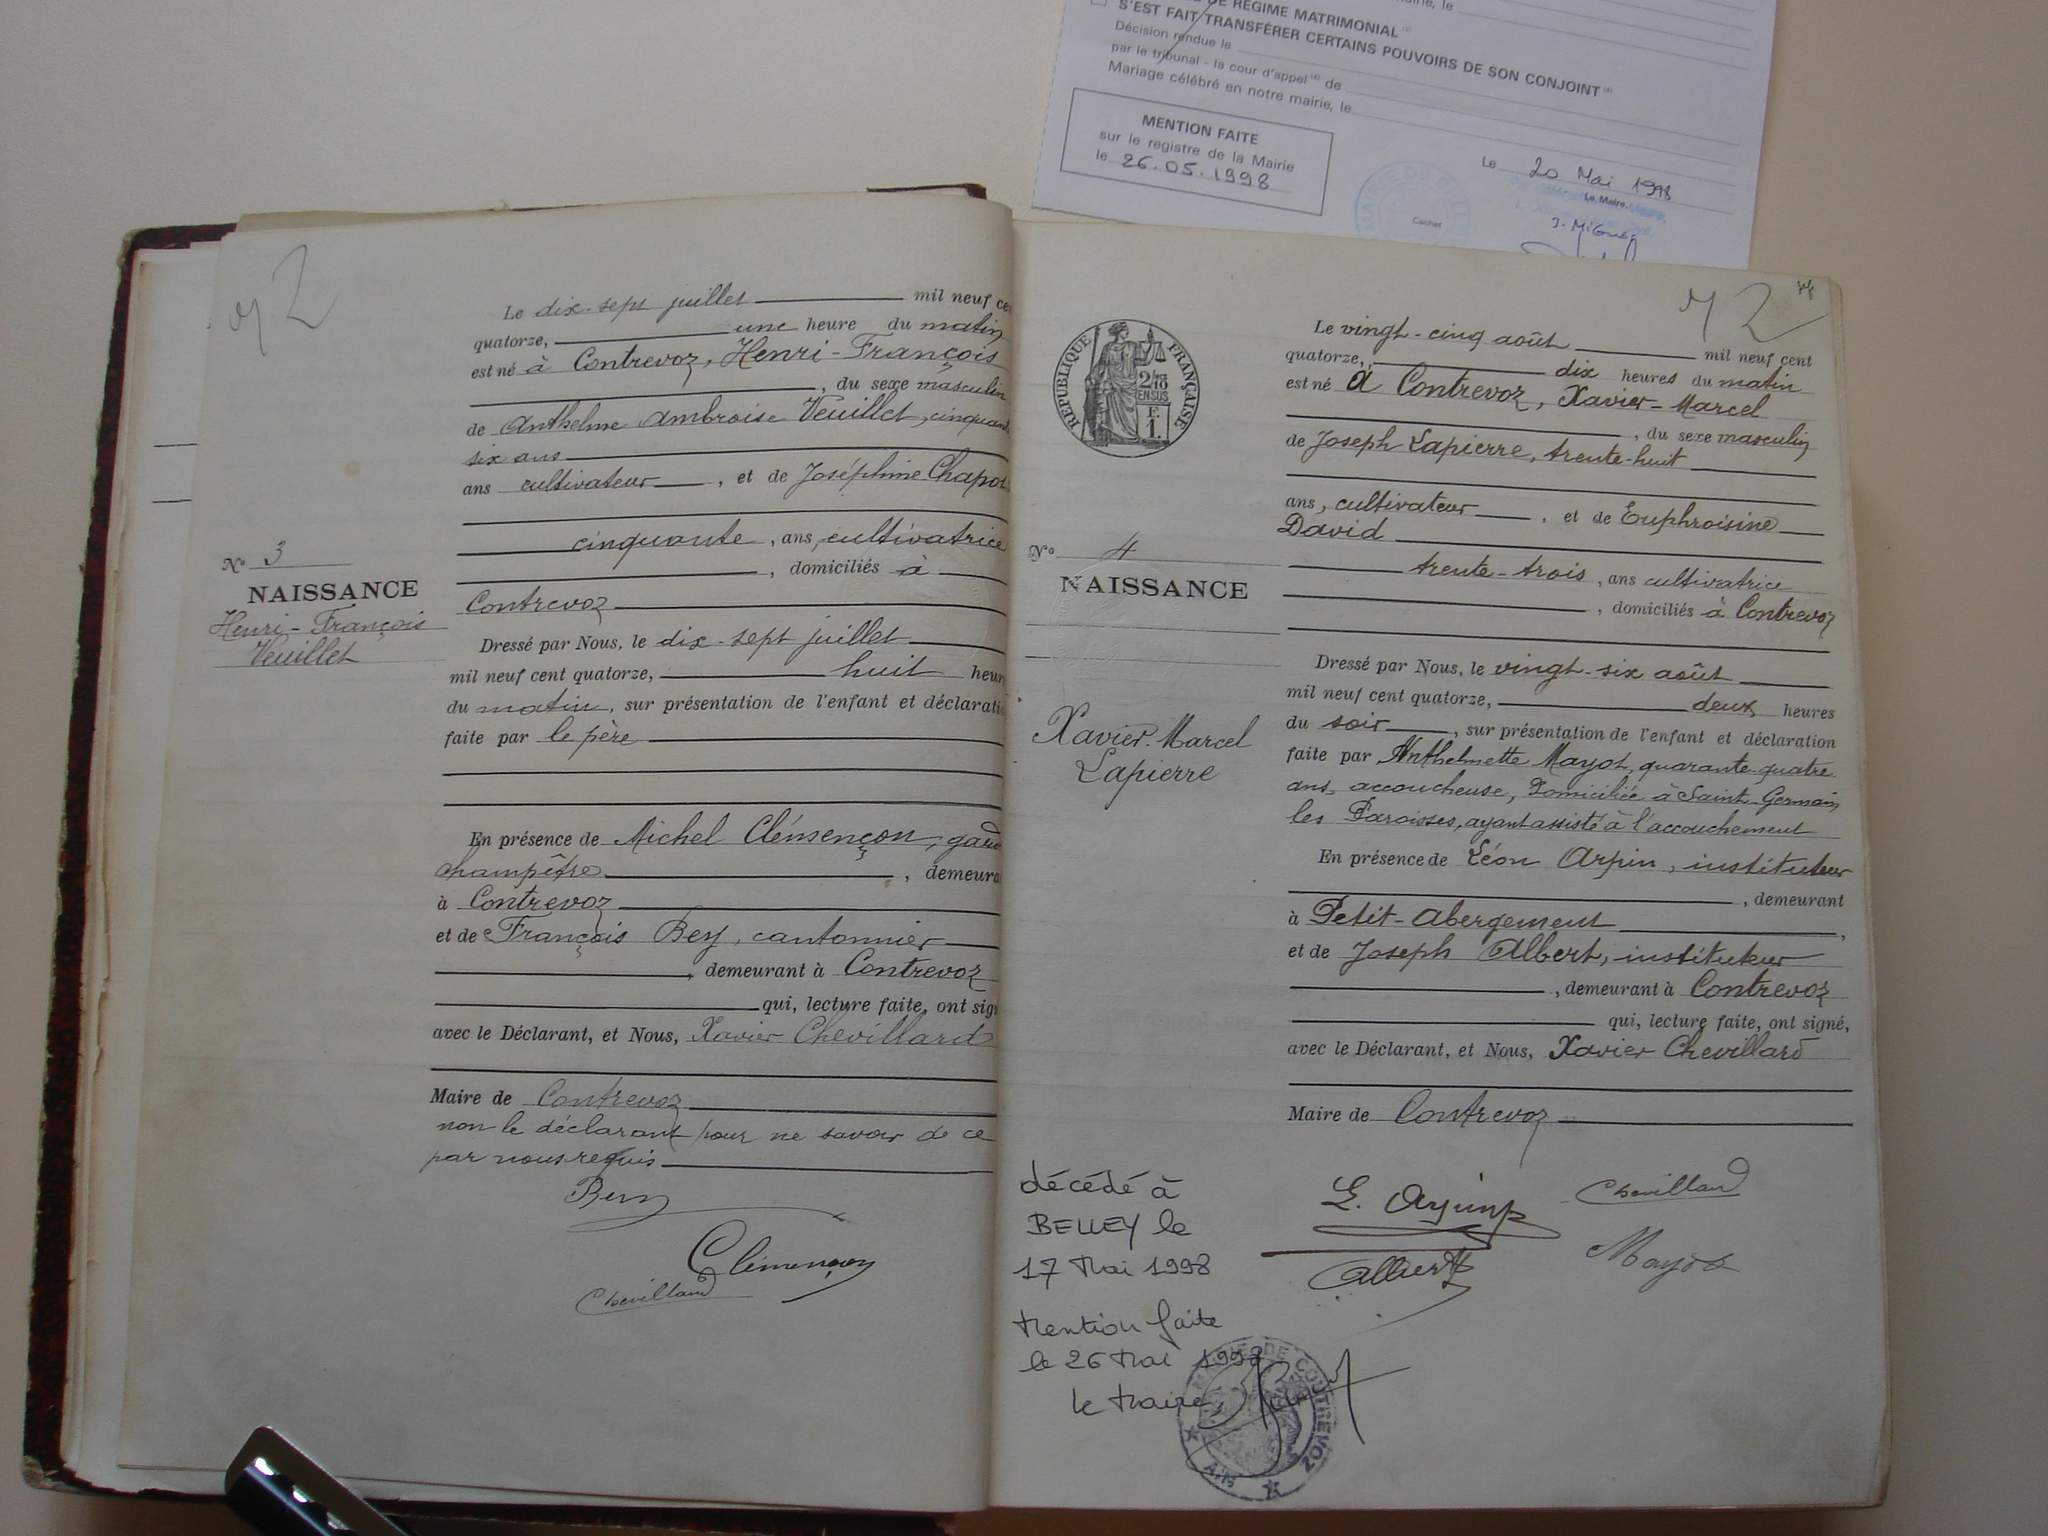 mairie, le
DE RÉGIME MATRIMONIAL
S'EST FAIT TRANSFÉRER CERTAINS POUVOIRS DE SON CONJOINT
Décision rendue le
par le tribunal - la cour d'appel de
Mariage célébré en notre mairie, le
MENTION FAITE
sur le registre de la Mairie
le 26.05.1998
Le 20 Mai 1998
Le Maire,
Cachet
2
Le dix-sept juillet mil neuf cen
quatorze, une heure du matin
est né à Contrevoz, Henri-François
, du sexe masculin
de Anthelme Ambroise Veuillet, cinquant
six ans
ans cultivateur, et de Joséphine Chapot
cinquante, ans, cultivatrice
, domiciliés à
Contrevoz
Dressé par Nous, le dix-sept juillet
mil neuf cent quatorze, huit heur
du matin, sur présentation de l'enfant et déclarati
faite par le père
En présence de Michel Clémençon, gard
champêtre, demeura
à Contrevoz
et de François Bey, cantonnier
, demeurant à Contrevoz
qui, lecture faite, ont sign
avec le Déclarant, et Nous, Xavier Chevillard
Maire de Contrevoz
non le déclarant pour ne savoir de ce
par nous requis
Clémençon
Chevillard
N° 3
NAISSANCE
Henri-François
Veuillet
2
RÉPUBLIQUE FRANÇAISE
2/10
EN SUS
F.
1.
Le vingt-cinq août mil neuf cent
quatorze, dix heures du matin
est né à Contrevoz, Xavier-Marcel
, du sexe masculin
de Joseph Lapierre, trente-huit
ans, cultivateur, et de Euphroisine
David
trente-trois, ans cultivatrice
, domiciliés à Contrevoz
Dressé par Nous, le vingt-six août
mil neuf cent quatorze, deux heures
du soir, sur présentation de l'enfant et déclaration
faite par Anthelmette Mayot, quarante-quatre
ans, accoucheuse, Domiciliée à Saint-Germain
les Paroisses, ayant assisté à l'accouchement
En présence de Léon Arpin, instituteur
, demeurant
à Petit-Abergement,
et de Joseph Albert, instituteur
, demeurant à Contrevoz
qui, lecture faite, ont signé,
avec le Déclarant, et Nous, Xavier Chevillard
Maire de Contrevoz
N° 4
NAISSANCE
Xavier-Marcel
Lapierre
L. Arpin
Chevillard
Albert
Mayot
décédé à
BELLEY le
17 Mai 1998
Mention faite
le 26 Mai 1998
le Maire,
MAIRIE DE CONTREVOZ
AIN